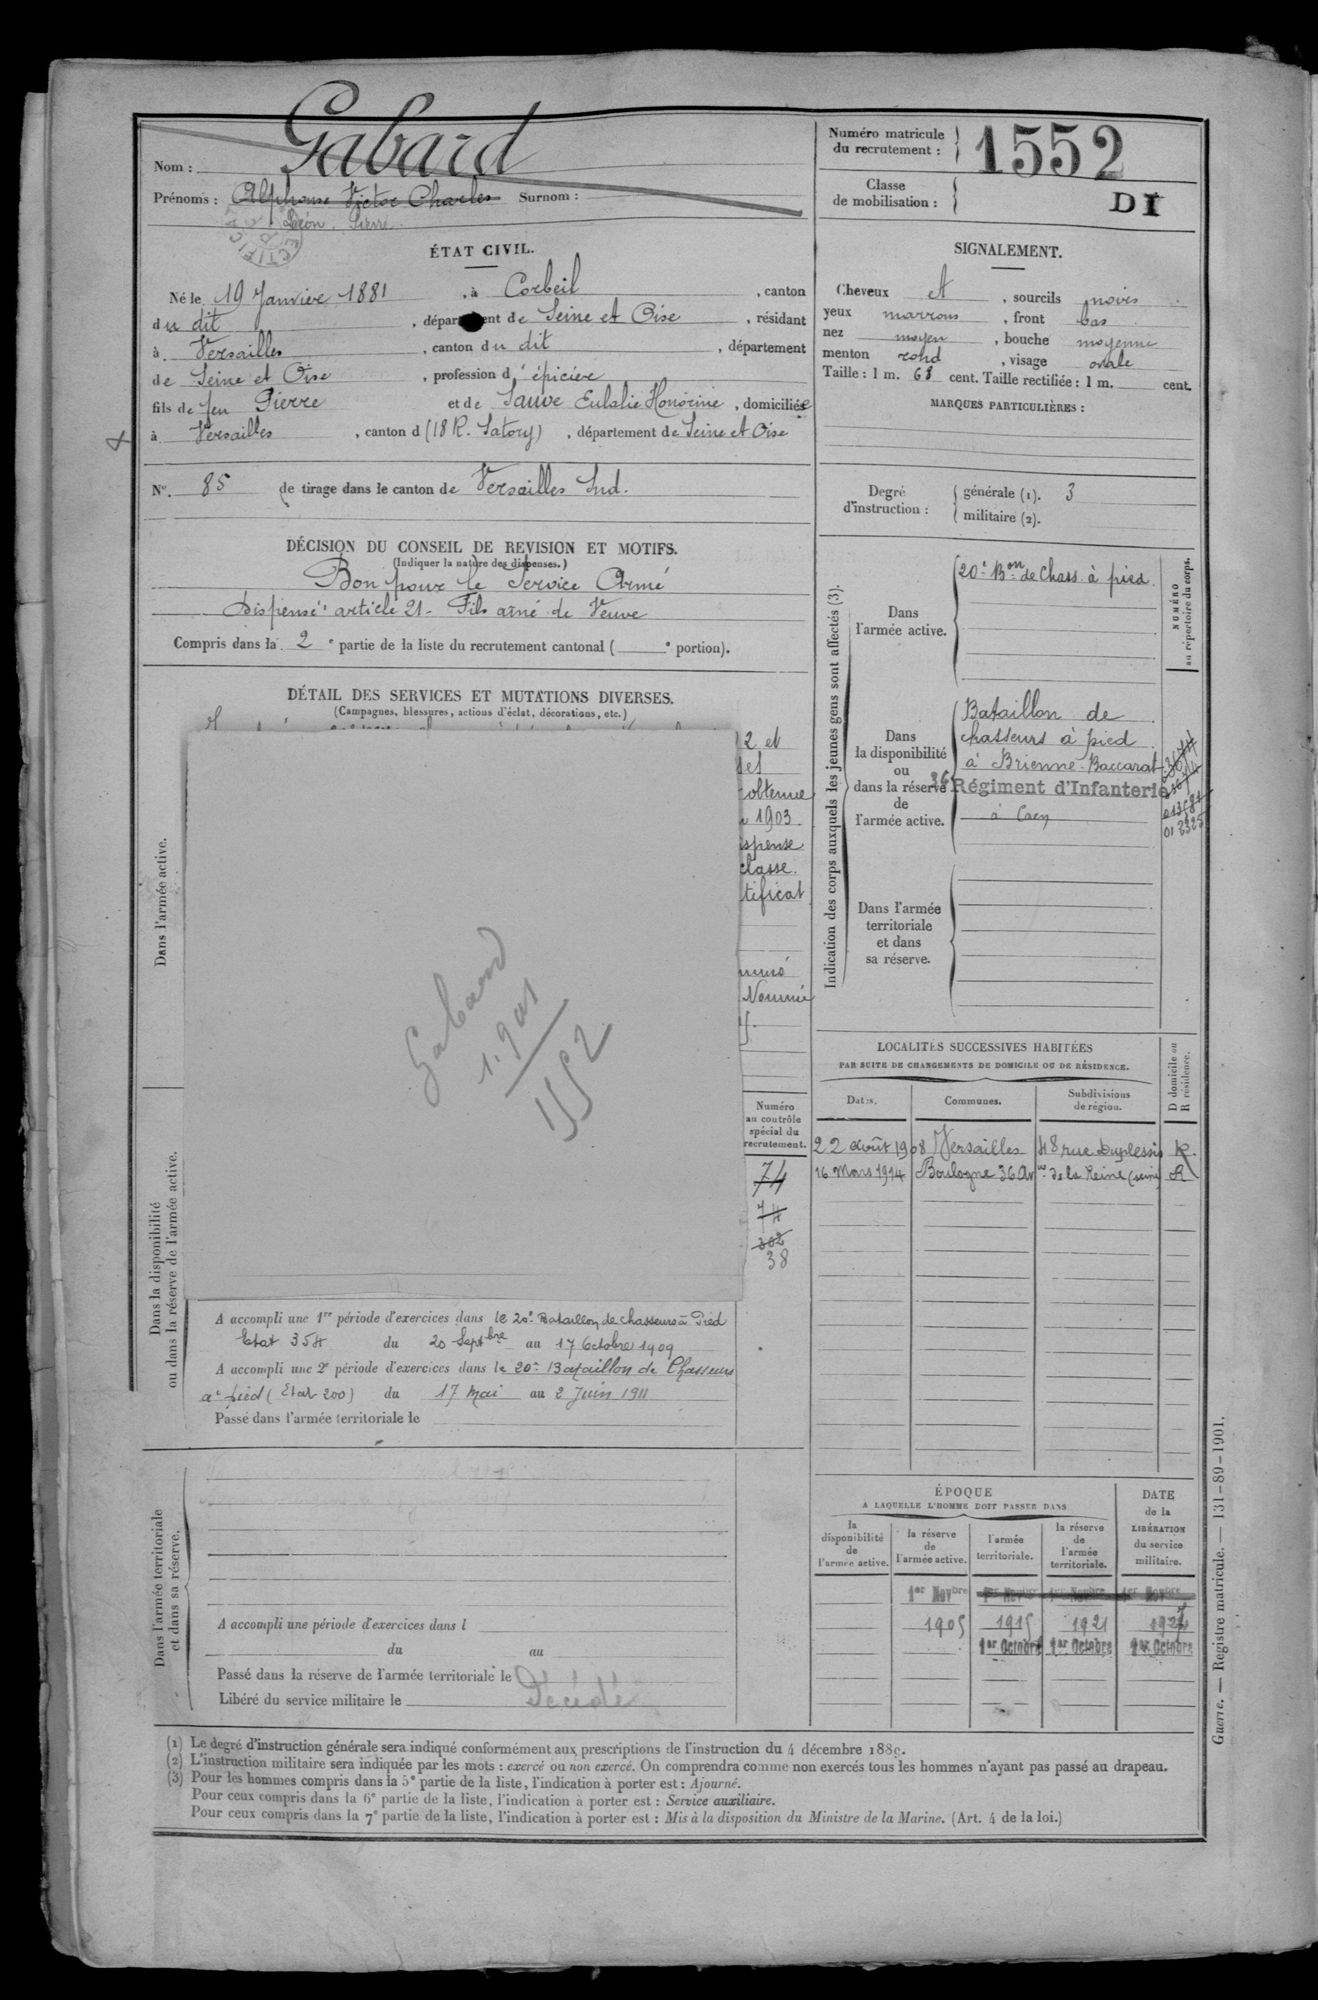 Nom : Gabard
Prénoms : Alphonse Victor Charles Surnom :
Léon Pierre
ÉTAT CIVIL.
Né le 19 Janvier 1881, à Corbeil, canton
du dit, département de Seine et Oise, résidant
à Versailles, canton du dit, département
de Seine et Oise, profession d'épicier
fils de feu Pierre et de Sauve Eulalie Honorine, domiciliée
à Versailles, canton d (18 R. Satory), département de Seine et Oise
N° 85 de tirage dans le canton de Versailles Sud.
DÉCISION DU CONSEIL DE REVISION ET MOTIFS.
(Indiquer la nature des dispenses.)
Bon pour le Service Armé
Dispensé article 21 - Fils aîné de Veuve
Compris dans la 2e partie de la liste du recrutement cantonal ( e portion).
DÉTAIL DES SERVICES ET MUTATIONS DIVERSES.
(Campagnes, blessures, actions d'éclat, décorations, etc.)
2 et
obtenue
1903
ispense
classe.
tificat
Nommé
Dans l'armée active.
Gabard
1.9 01
1552
Numéro
au contrôle
spécial du
recrutement.
74
74
302
38
Dans la disponibilité
ou dans la réserve de l'armée active.
A accompli une 1re période d'exercices dans le 20e Bataillon de chasseurs à Pied
Etat 354 du 20 Septbre au 17 Octobre 1909
A accompli une 2e période d'exercices dans le 20e Bataillon de Chasseurs
à pied (Etat 200) du 17 Mai au 2 Juin 1911
Passé dans l'armée territoriale le
Dans l'armée territoriale
et dans sa réserve.
A accompli une période d'exercices dans l
du au
Passé dans la réserve de l'armée territoriale le
Libéré du service militaire le Décédé
Numéro matricule
du recrutement : 1552
Classe
de mobilisation : DI
SIGNALEMENT.
Cheveux et, sourcils noirs
yeux marrons, front bas
nez moyen, bouche moyenne
menton rond, visage ovale
Taille : 1 m. 68 cent. Taille rectifiée : 1 m. cent.
MARQUES PARTICULIÈRES :
Degré
d'instruction :
générale (1). 3
militaire (2).
Indication des corps auxquels les jeunes gens sont affectés (3).
NUMÉRO
au répertoire du corps.
Dans
l'armée active.
20e Bon de Chass. à pied.
Dans
la disponibilité
ou
dans la réserve
de
l'armée active.
Bataillon de
chasseurs à pied
à Brienne-Baccarat
36 Régiment d'Infanterie
à Caen
01 2325
Dans l'armée
territoriale
et dans
sa réserve.
LOCALITÉS SUCCESSIVES HABITÉES
PAR SUITE DE CHANGEMENTS DE DOMICILE OU DE RÉSIDENCE.
D domicile ou
R résidence.
Dates. Communes. Subdivisions
de région.
22 août 1908 Versailles 48 rue Duplessis R.
16 Mars 1914 Boulogne 36 Av ue de la Reine (Seine) R
ÉPOQUE
A LAQUELLE L'HOMME DOIT PASSER DANS
la
disponibilité
de
l'armée active.
la réserve
de
l'armée active.
l'armée
territoriale.
la réserve
de
l'armée
territoriale.
DATE
de la
LIBÉRATION
du service
militaire.
1er Novbre 1er Novbre 1er Novbre 1er Novbre
1905 1915 1921 1927
1er Octobre 1er Octobre 1er Octobre
(1) Le degré d'instruction générale sera indiqué conformément aux prescriptions de l'instruction du 4 décembre 1889.
(2) L'instruction militaire sera indiquée par les mots : exercé ou non exercé. On comprendra comme non exercés tous les hommes n'ayant pas passé au drapeau.
(3) Pour les hommes compris dans la 5e partie de la liste, l'indication à porter est : Ajourné.
Pour ceux compris dans la 6e partie de la liste, l'indication à porter est : Service auxiliaire.
Pour ceux compris dans la 7e partie de la liste, l'indication à porter est : Mis à la disposition du Ministre de la Marine. (Art. 4 de la loi.)
Guerre. — Registre matricule. — 131-89-1901.